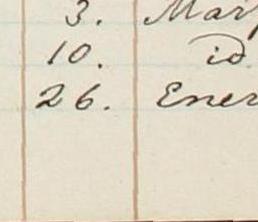 3. Mar
10. id
26. Ener